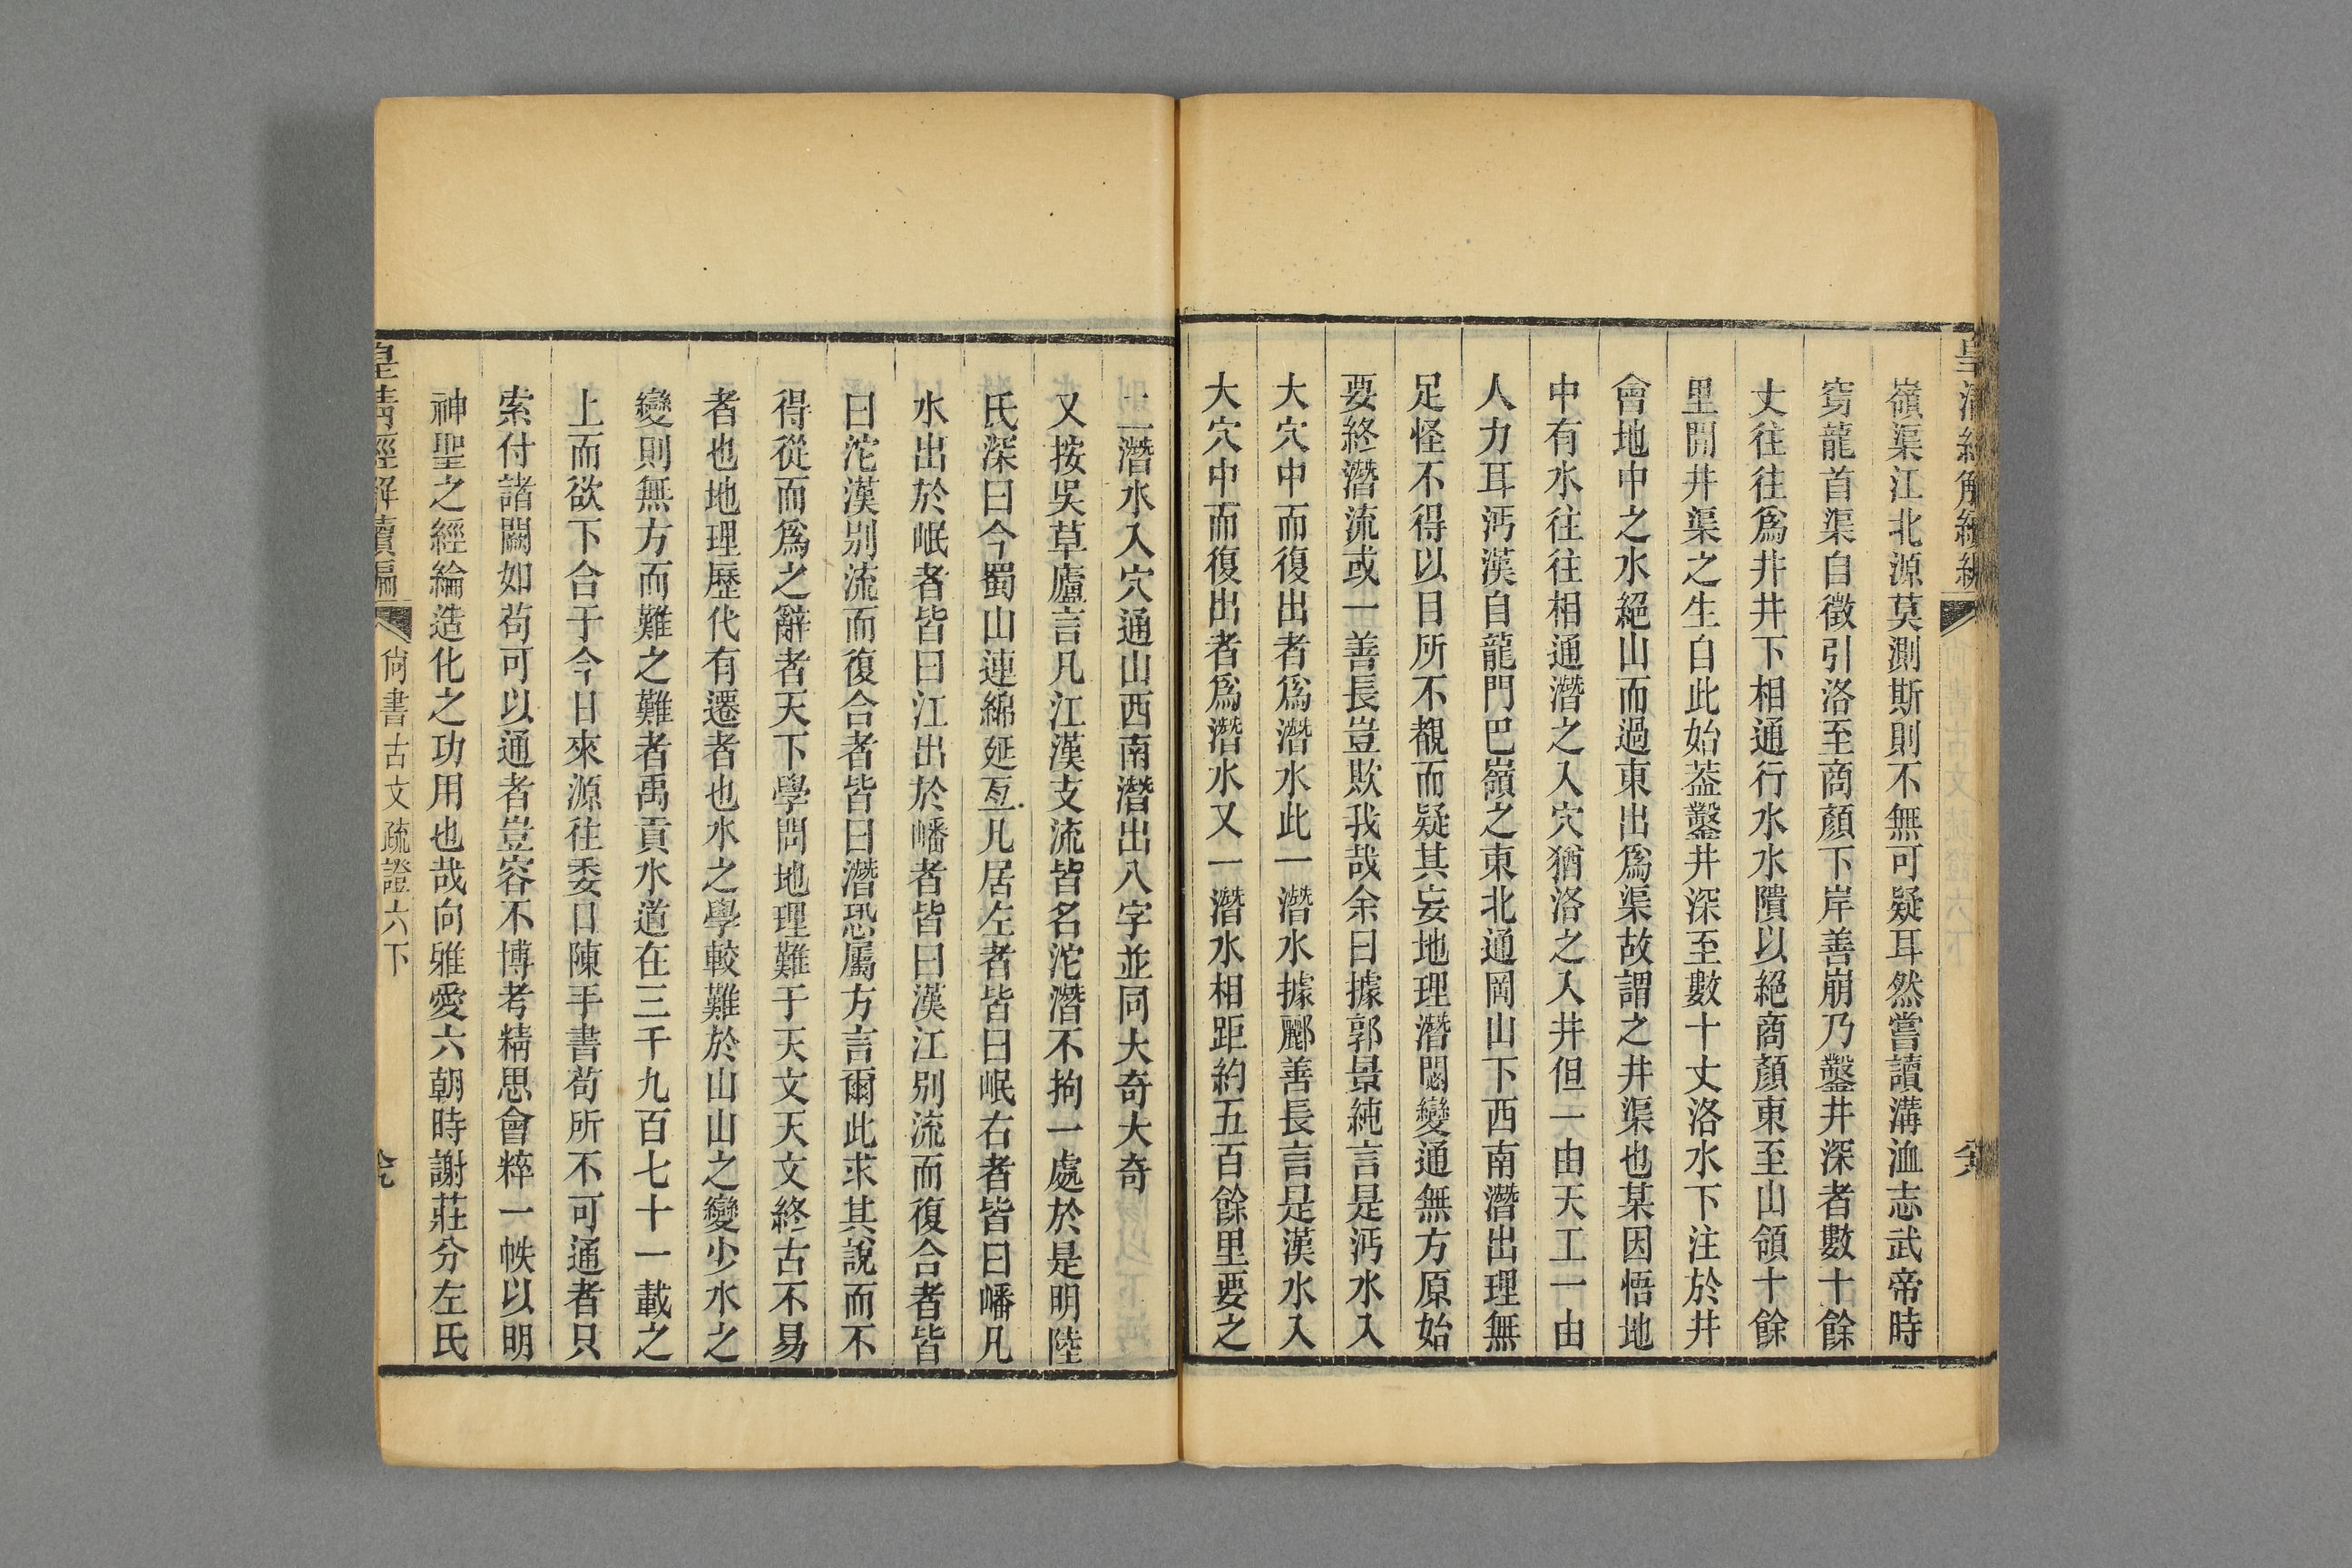 皇清經解續編
嶺渠江北源莫測斯則不無可疑耳然嘗讀溝洫志武帝時
穿龍首渠自徵引洛至商顏下岸善崩乃鑿井深者數十餘
丈往往爲井井下相通行水水隤以絕商顏東至山領十餘
里閒井渠之生自此始葢鑿井深至數十丈洛水下注於井
會地中之水絕山而過東出爲渠故謂之井渠也某因悟地
中有水往往相通潛之入穴猶洛之入井但一由天工一由
人力耳沔漢自龍門巴嶺之東北通岡山下西南潛出理無
足怪不得以目所不覩而疑其妄地理潛閟變通無方原始
要終潛流或一善長豈欺我哉余曰據郭景純言是沔水入
大穴中而復出者爲潛水此一潛水據酈善長言是漢水入
大穴中而復出者爲潛水又一潛水相距約五百餘里要之
二潛水入穴通山西南潛出八字並同大奇大奇
又按吳草廬言凡江漢支流皆名沱潛不拘一處於是明陸
氏深曰今蜀山連綿延亙凡居左者皆曰岷右者皆曰嶓凡
水出於岷者皆曰江出於嶓者皆曰漢江别流而復合者皆
曰沱漢别流而復合者皆曰潛恐屬方言爾此求其說而不
得從而爲之辭者天下學問地理難于天文天文終古不易
者也地理歷代有遷者也水之學較難於山山之變少水之
變則無方而難之難者禹貢水道在三千九百七十一載之
上而欲下合于今日來源往委口陳手書苟所不可通者只
索付諸闕如苟可以通者豈容不博考精思會粹一帙以明
神聖之經綸造化之功用也哉向雅愛六朝時謝莊分左氏
皇清經解續編
尙書古文疏證六下